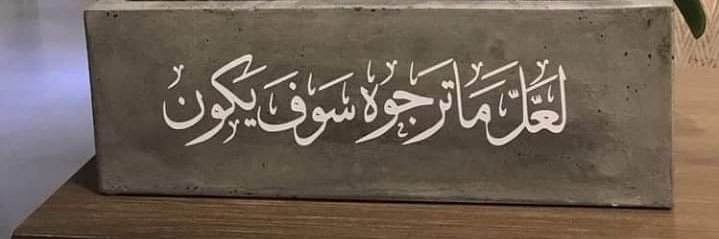 لَعَلَّ مَا تَرجوه سَوفَ يَكون